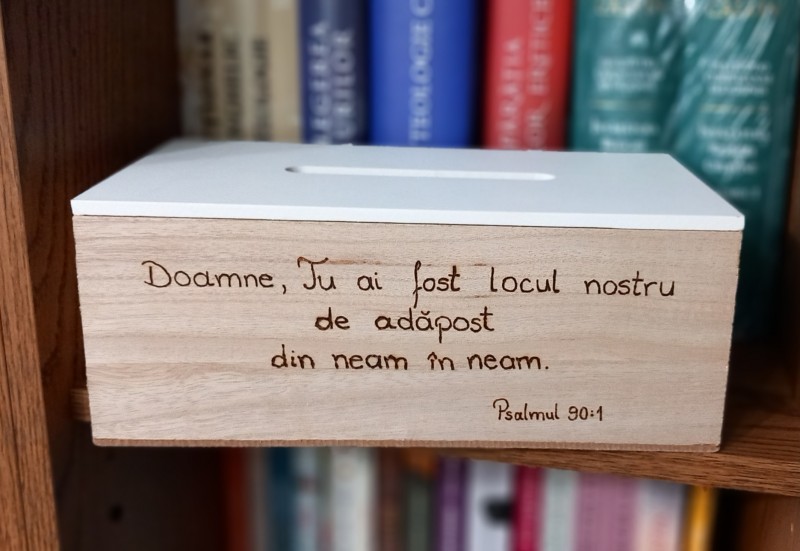 TEOLOGIE
Doamne, Tu ai fost locul nostru
de adăpost
din neam în neam.
Psalmul 90:1